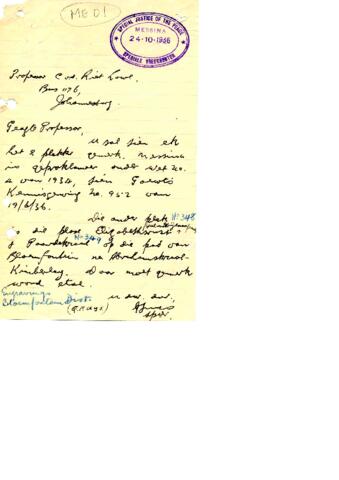 MED1
SPECIAL JUSTICE OF THE PEACE
MESSINA
24-10-1936
SPESIALE VREDEREGTER
Professor C. v. Riet Lowe
Bus 1176,
Johannesburg.
Geagte Professor,
U sal sien ek
het 2 plekke gemerk. Messina
is geproklameer onder Wet No.
4 van 1934, sien Goewts
Kennisgewing No. 952 van
19/6/36.
Die ander plek No 348
is die plaas
No 349
op die pad van
Bloemfontein na Abrahamskraal-
Kimberley. Daar moet gemerk
word
Engravings
Bloemfontein Dist.
u dw. dr.